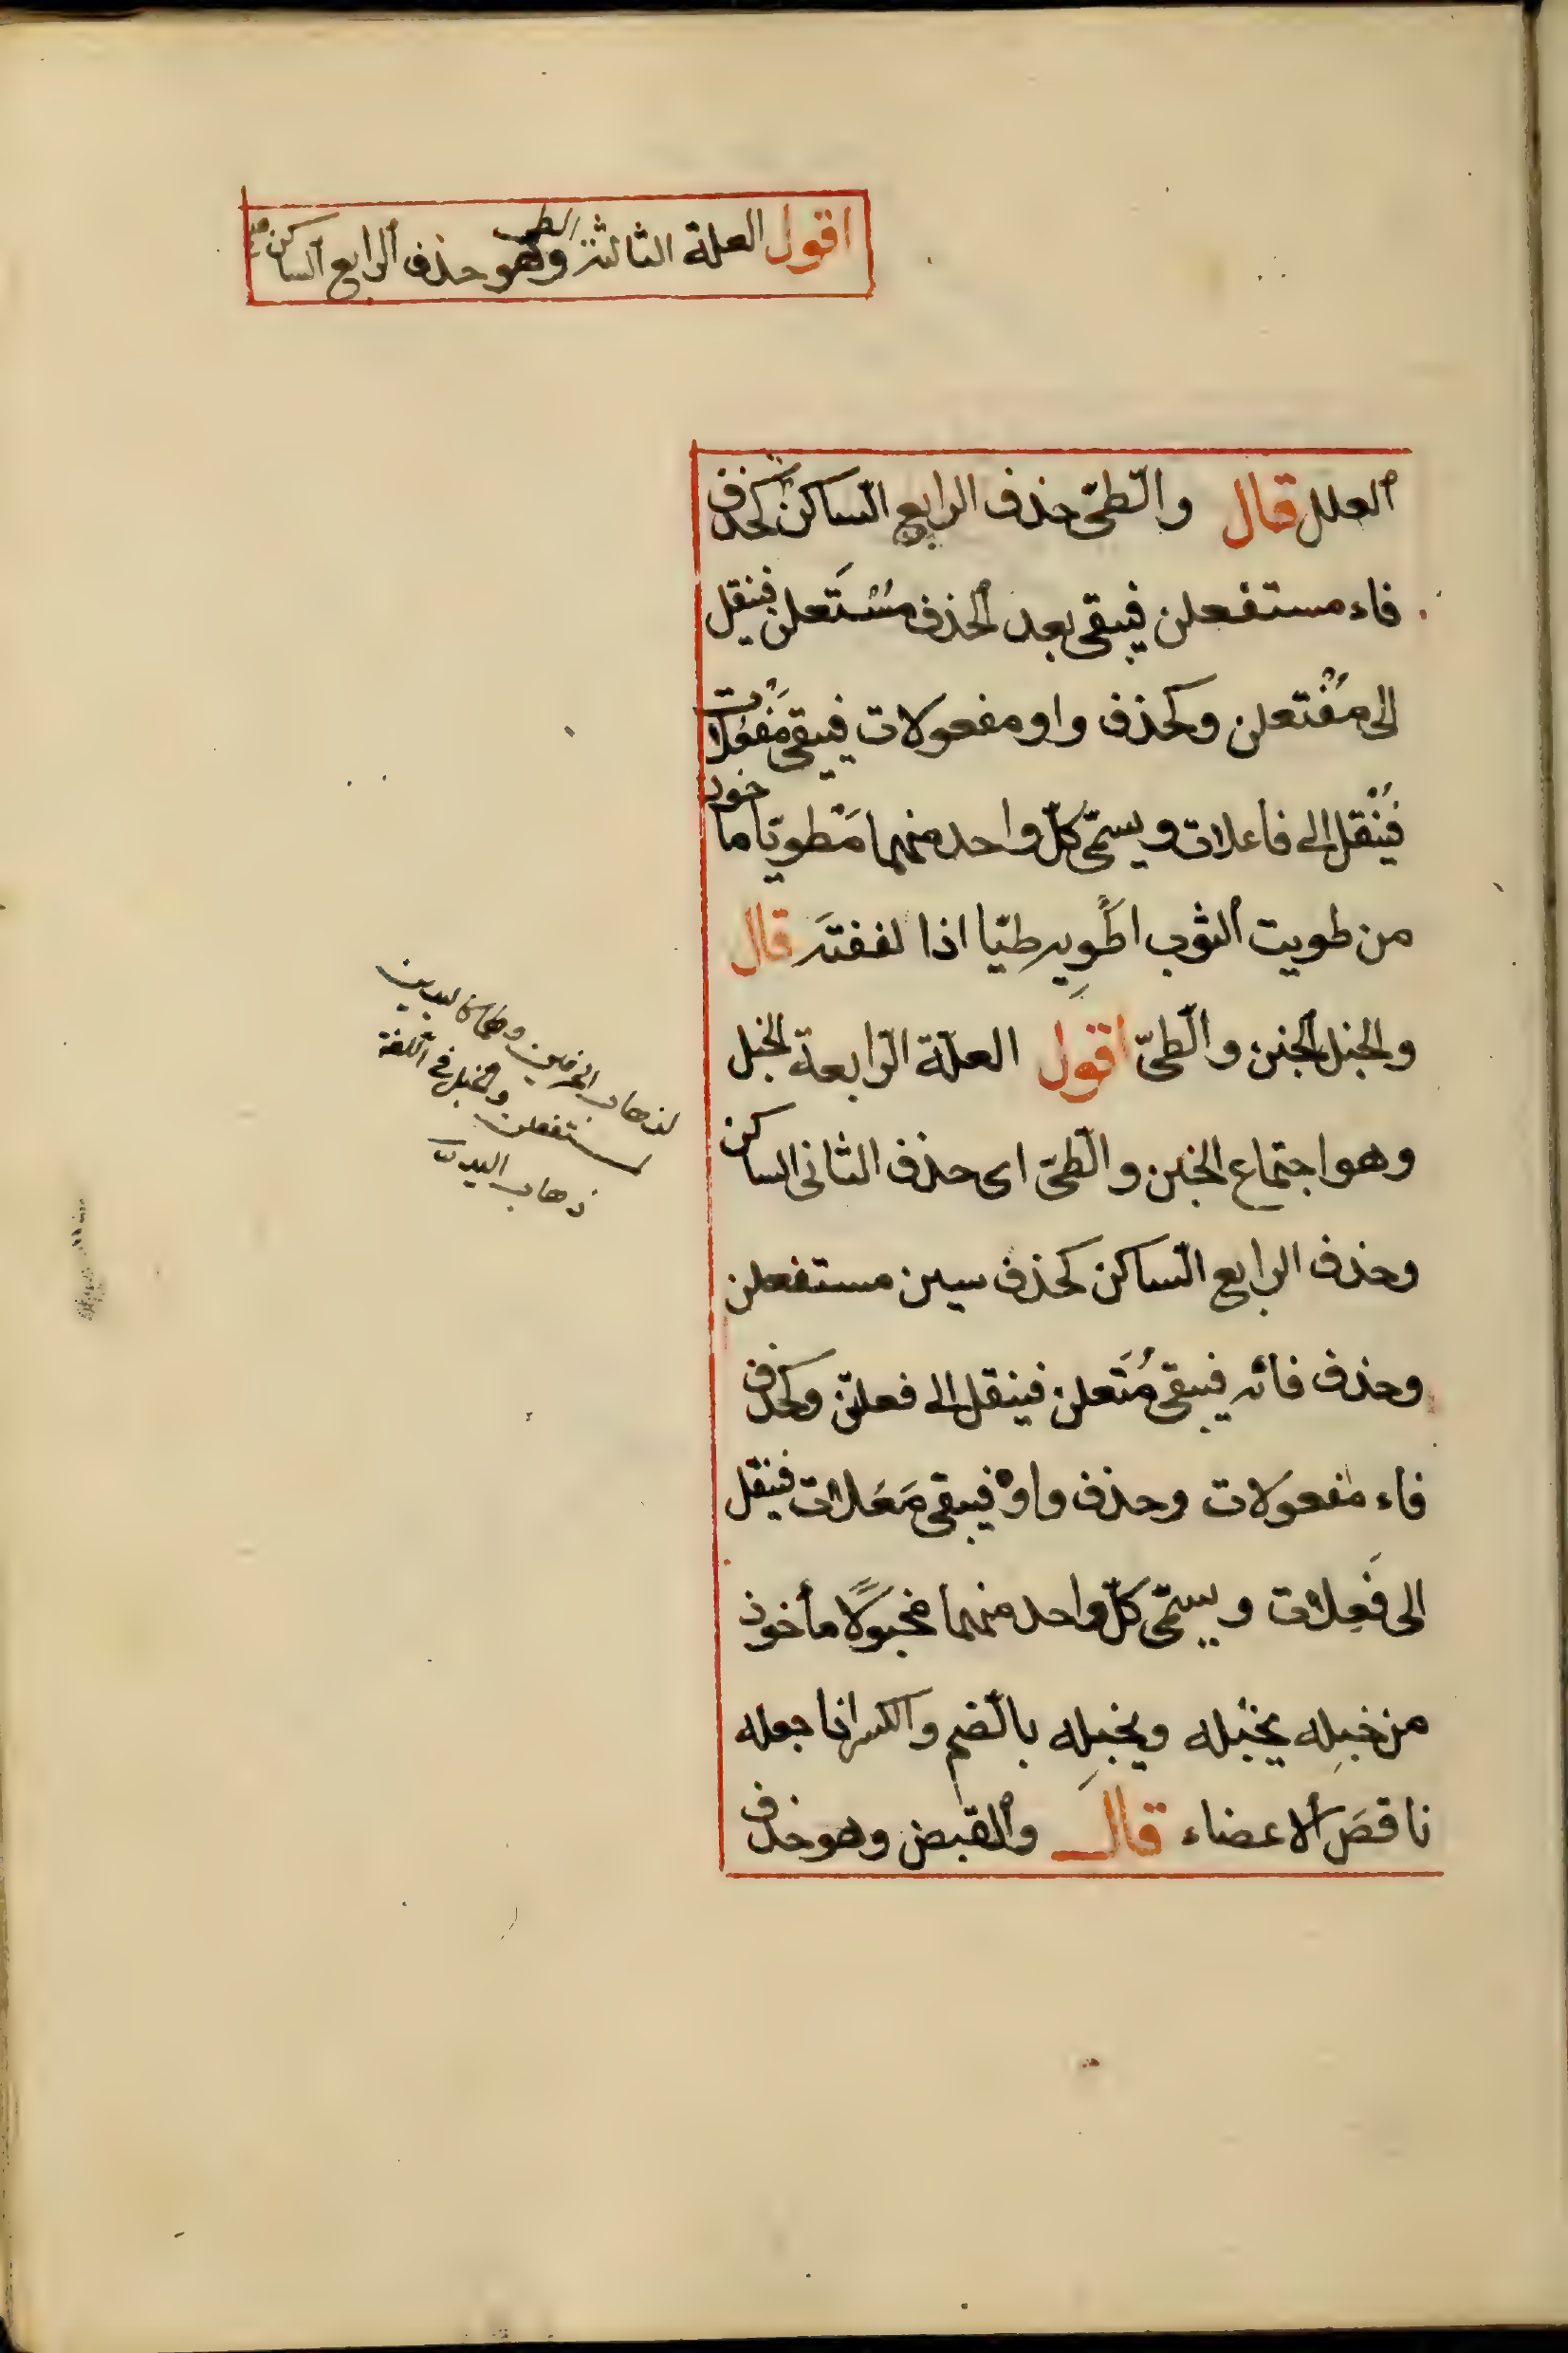 اقول العلة الثالثة الطى وهو حذف الرابع الساكن صح
العلل قال والطىّ حذف الرابع الساكن كحذف
فاء مستفعلن فيبقى بعد الحذف مُسْتَعلن فينقل
الى مُفْتعلن وكحذف واو مفعولات فيبقى مَفْعُلات
فيُنْقل الى فاعلات ويسمّى كلّ واحد منهما مَطْويّا ماخوذ
من طويت الثوب اطْوِيه طيّا اذا لففته قال
والخبل الخبن والطىّ اقول العلّة الرابعة الخبل
وهو اجتماع الخبن والطىّ اى حذف الثانى الساكن
وحذف الرابع الساكن كحذف سين مستفعلن
وحذف فائه فيبقى مُتَعلن فينقل الى فعلتن وكحذف
فاء مفعولات وحذف واوه فيبقى مَعَلات فينقل
الى فَعِلات ويسمّى كلّ واحد منهما مخبولًا مأخوذ
من خبله يخبُله ويخبِله بالضم والكسر اذا جعله
ناقصَ الاعضاء قال والقبض وهو حذف
لذهاب الحرفين وهما كاليدين
لمستفعلن والخبل فى اللغة
ذهاب اليدين